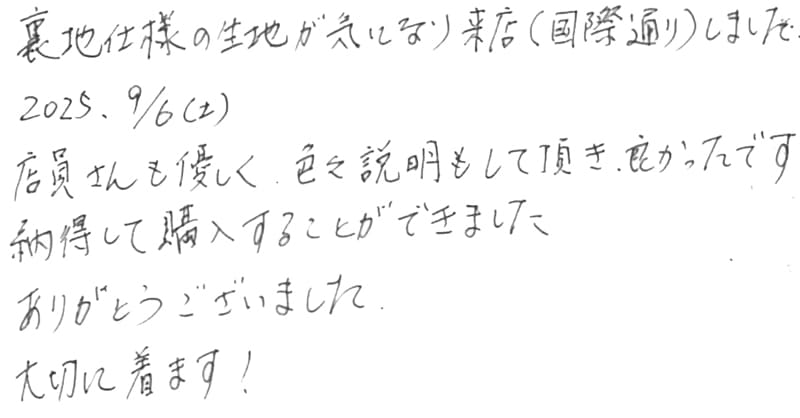 裏地仕様の生地が気になり来店(国際通り)しました.
2025. 9/6(土)
店員さんも優しく. 色々説明もして頂き.良かったです
納得して購入することができました
ありがとうございました.
大切に着ます!